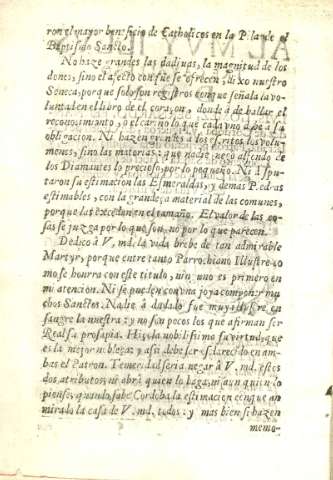 ron el mayor beneficio de Catholicos en la Pila de el
Baptismo Sancto.
No haze grandes las dadiuas, la magnitud de los
dones, sino el afecto con que se ofrecen, dixo nuestro
Seneca, porque solo son registros en que señala la vo-
luntad en el libro de el coraçon, donde à de hallar el
reconocimiento, ò el cariño lo que cada vno debe à su
obligacion. Ni hazen grandes à los escritos los volu-
menes, sino las materias: que nadie negò al fondo de
los Diamantes lo precioso, por lo pequeño. Ni dispu-
taron su estimacion las Esmeraldas, y demas Piedras
estimables, con la grandeza material de las comunes,
porque las excedan en el tamaño. El valor de las co-
sas se juzga por lo que son, no por lo que parecen.
Dedico à V. md. la vida brebe de tan admirable
Martyr, porque entre tanto Parrochiano Illustre co-
mo se honrra con este titulo, ninguno es primero en
mi atencion. Ni se pueden con vna joya componer mu-
chos Sanctos. Nadie à dudado fue muy illustre en
sangre la nuestra: y no son pocos los que afirman ser
Real su prosapia. Hizola nobilissima su virtud, que
es la mejor nobleza: y assi debe ser esclarecido en am-
bas el Patron. Temeridad seria negar à V. md. estos
dos atributos; ni abrà quien lo haga, ni aun quien lo
piense, quando sabe Cordoba la estimacion en que an
mirado la casa de V. md. todos: y mas bien si hazen
memo-